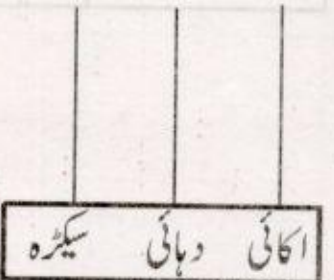 اکائی دہائی سیکڑہ